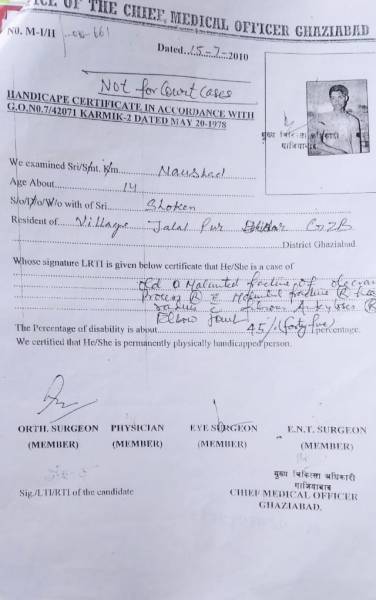 OFFICE OF THE CHIEF, MEDICAL OFFICER GHAZIABAD
No. M-I/II
661
Dated 15-7-2010
Not for Court Cases
HANDICAPE CERTIFICATE IN ACCORDANCE WITH
G.O.N0.7/42071 KARMIK-2 DATED MAY 20-1978
मुख्य चिकित्सा अधिकारी
गाजियाबाद
We examined Sri/Smt. Km Naushad
Age About 14
S/o/D/o/W/o with of Sri Shoken
Resident of Village Jalal Pur GZB
District Ghaziabad.
Whose signature LRTI is given below certificate that He/She is a case of
Old Malunited fracture of
Process R Malunited fracture R
Radius Fibrous Ankylosis R
Elbow Joint
The Percentage of disability is about 45% (forty five) percentage.
We certified that He/She is permanently physically handicapped person.
ORTH. SURGEON PHYSICIAN EYE SURGEON E.N.T. SURGEON
(MEMBER) (MEMBER) (MEMBER) (MEMBER)
मुख्य चिकित्सा अधिकारी
गाजियाबाद
Sig./LTI/RTI of the candidate CHIEF MEDICAL OFFICER
GHAZIABAD.